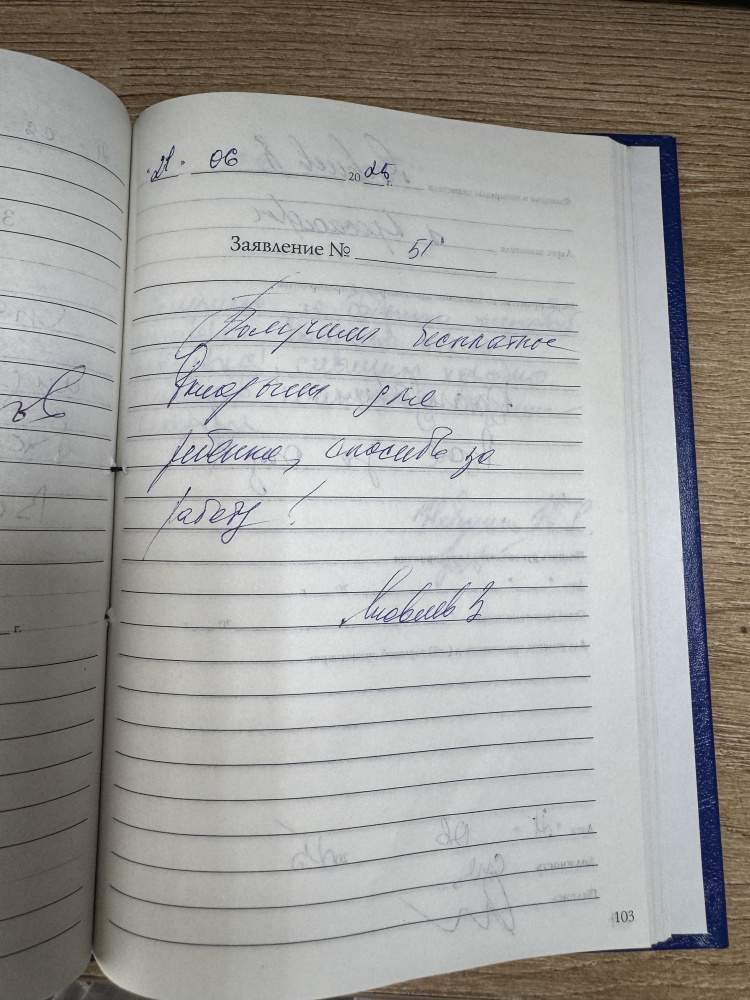 "21" 06 2025 г.
Заявление № 51
Получили бесплатное
для
ребенка, спасибо за
работу!
Яковлев В
г.
103